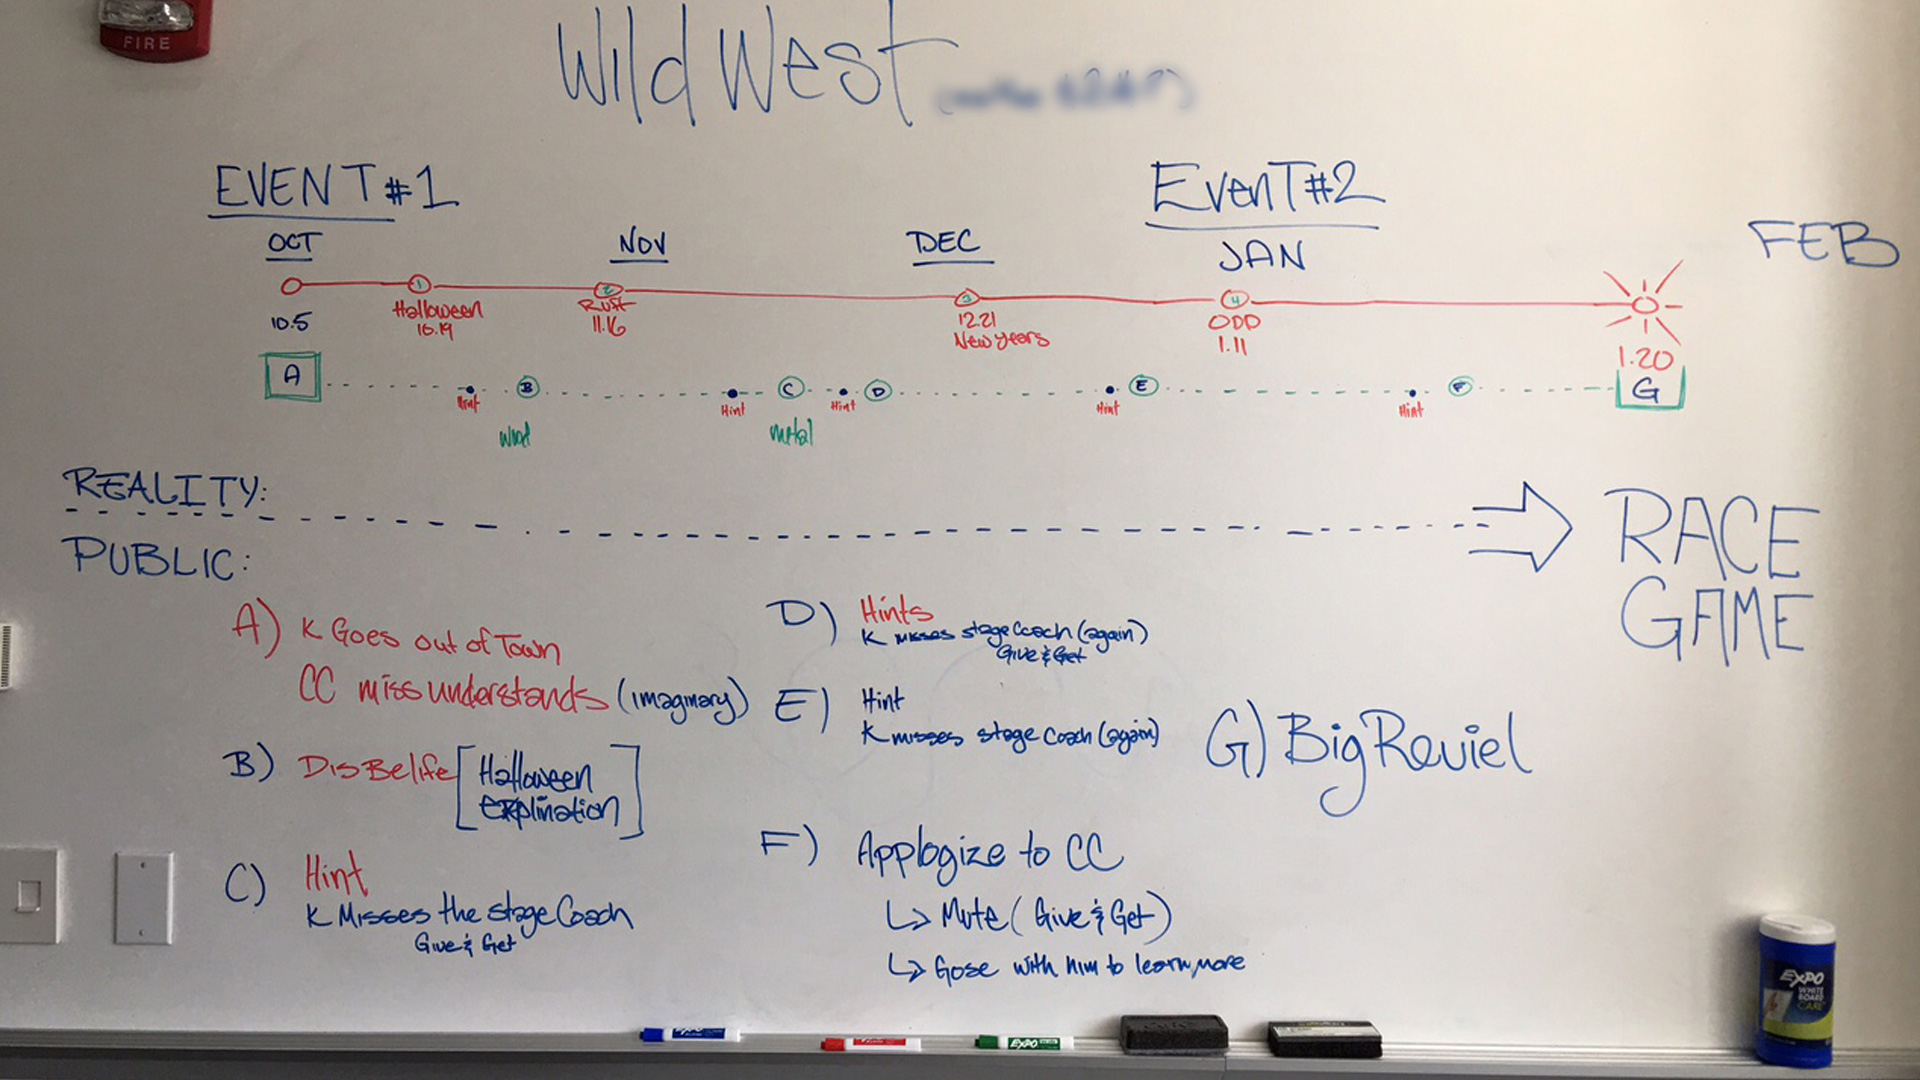 FIRE
Wild West
EVENT #1
EvenT #2
OCT
NOV
DEC
JAN
FEB
1
2
3
4
10.5
Halloween
10.19
Rust
11.16
12.21
New years
ODD
1.11
1.20
A
Hint
B
Hint
C
Hint
D
Hint
E
Hint
F
G
metal
REALITY:
PUBLIC:
RACE
GAME
A) K Goes out of Town
CC miss understands (imaginary)
B) DisBelife [Halloween
explination]
C) Hint
K Misses the stage Coach
Give & Get
D) Hints
K misses stage Coach (again)
Give & Get
E) Hint
K misses stage Coach (again)
F) Applogize to CC
↳ Mute (Give & Get)
↳ Gose with him to learn more
G) Big Reviel
EXPO
EXPO
EXPO
WHITE
BOARD
CARE